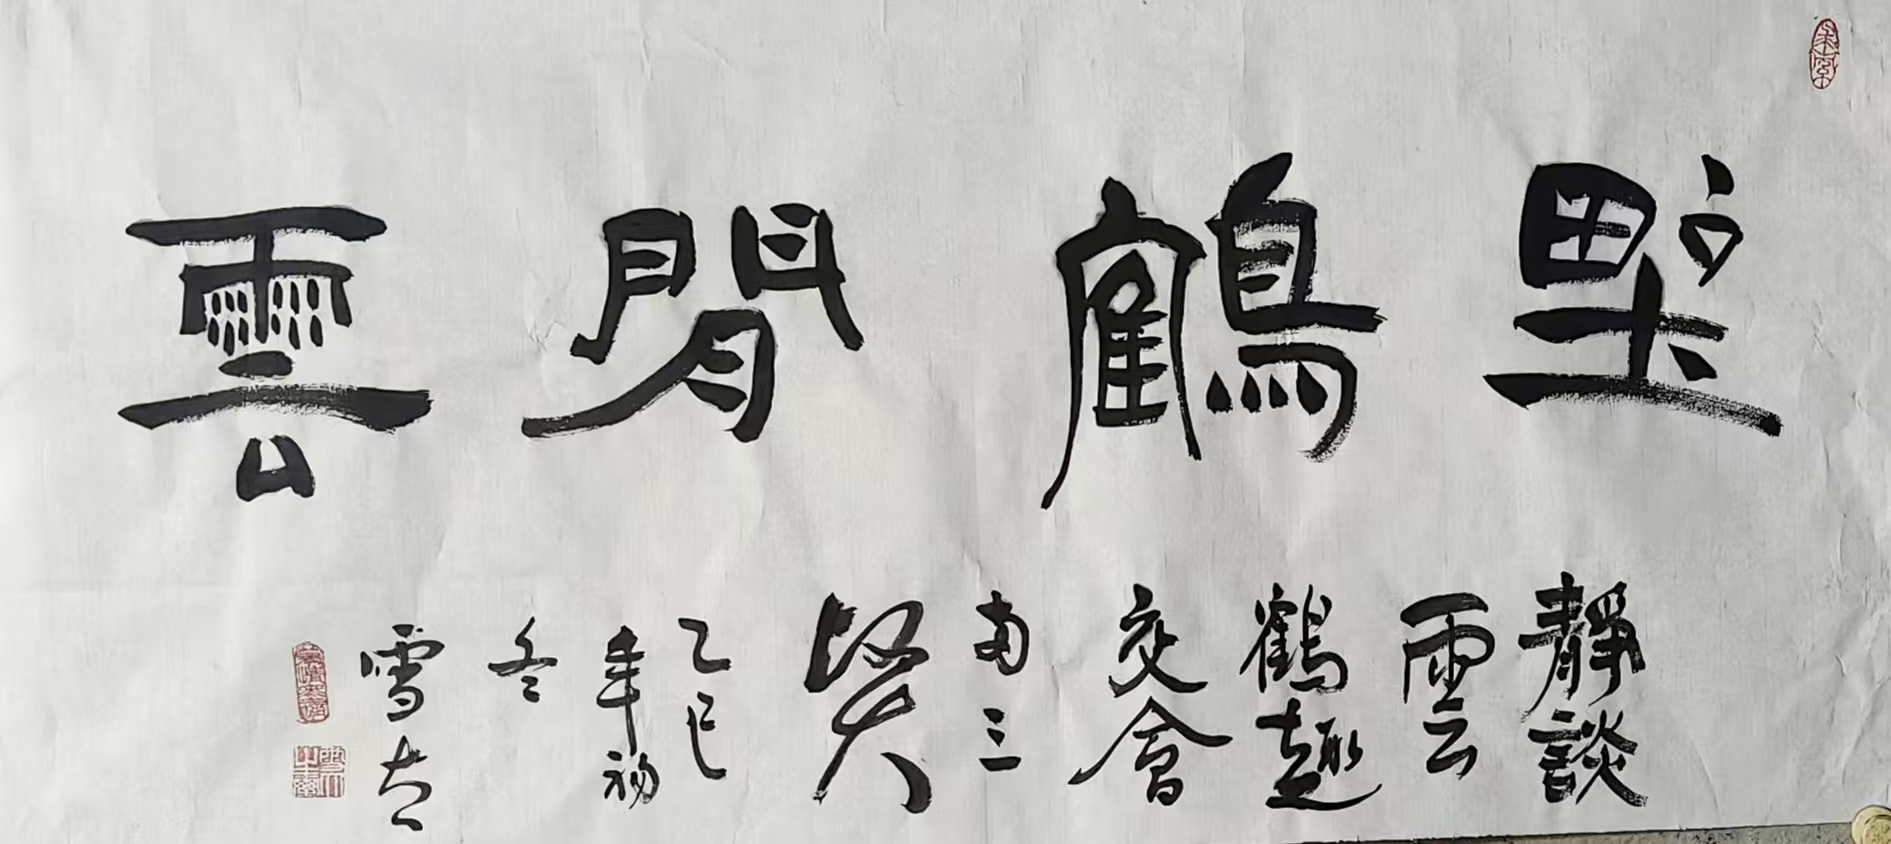 野鶴閒雲
靜談
雲
鶴趣
交會
南三
賢
乙巳
年初
冬
雪